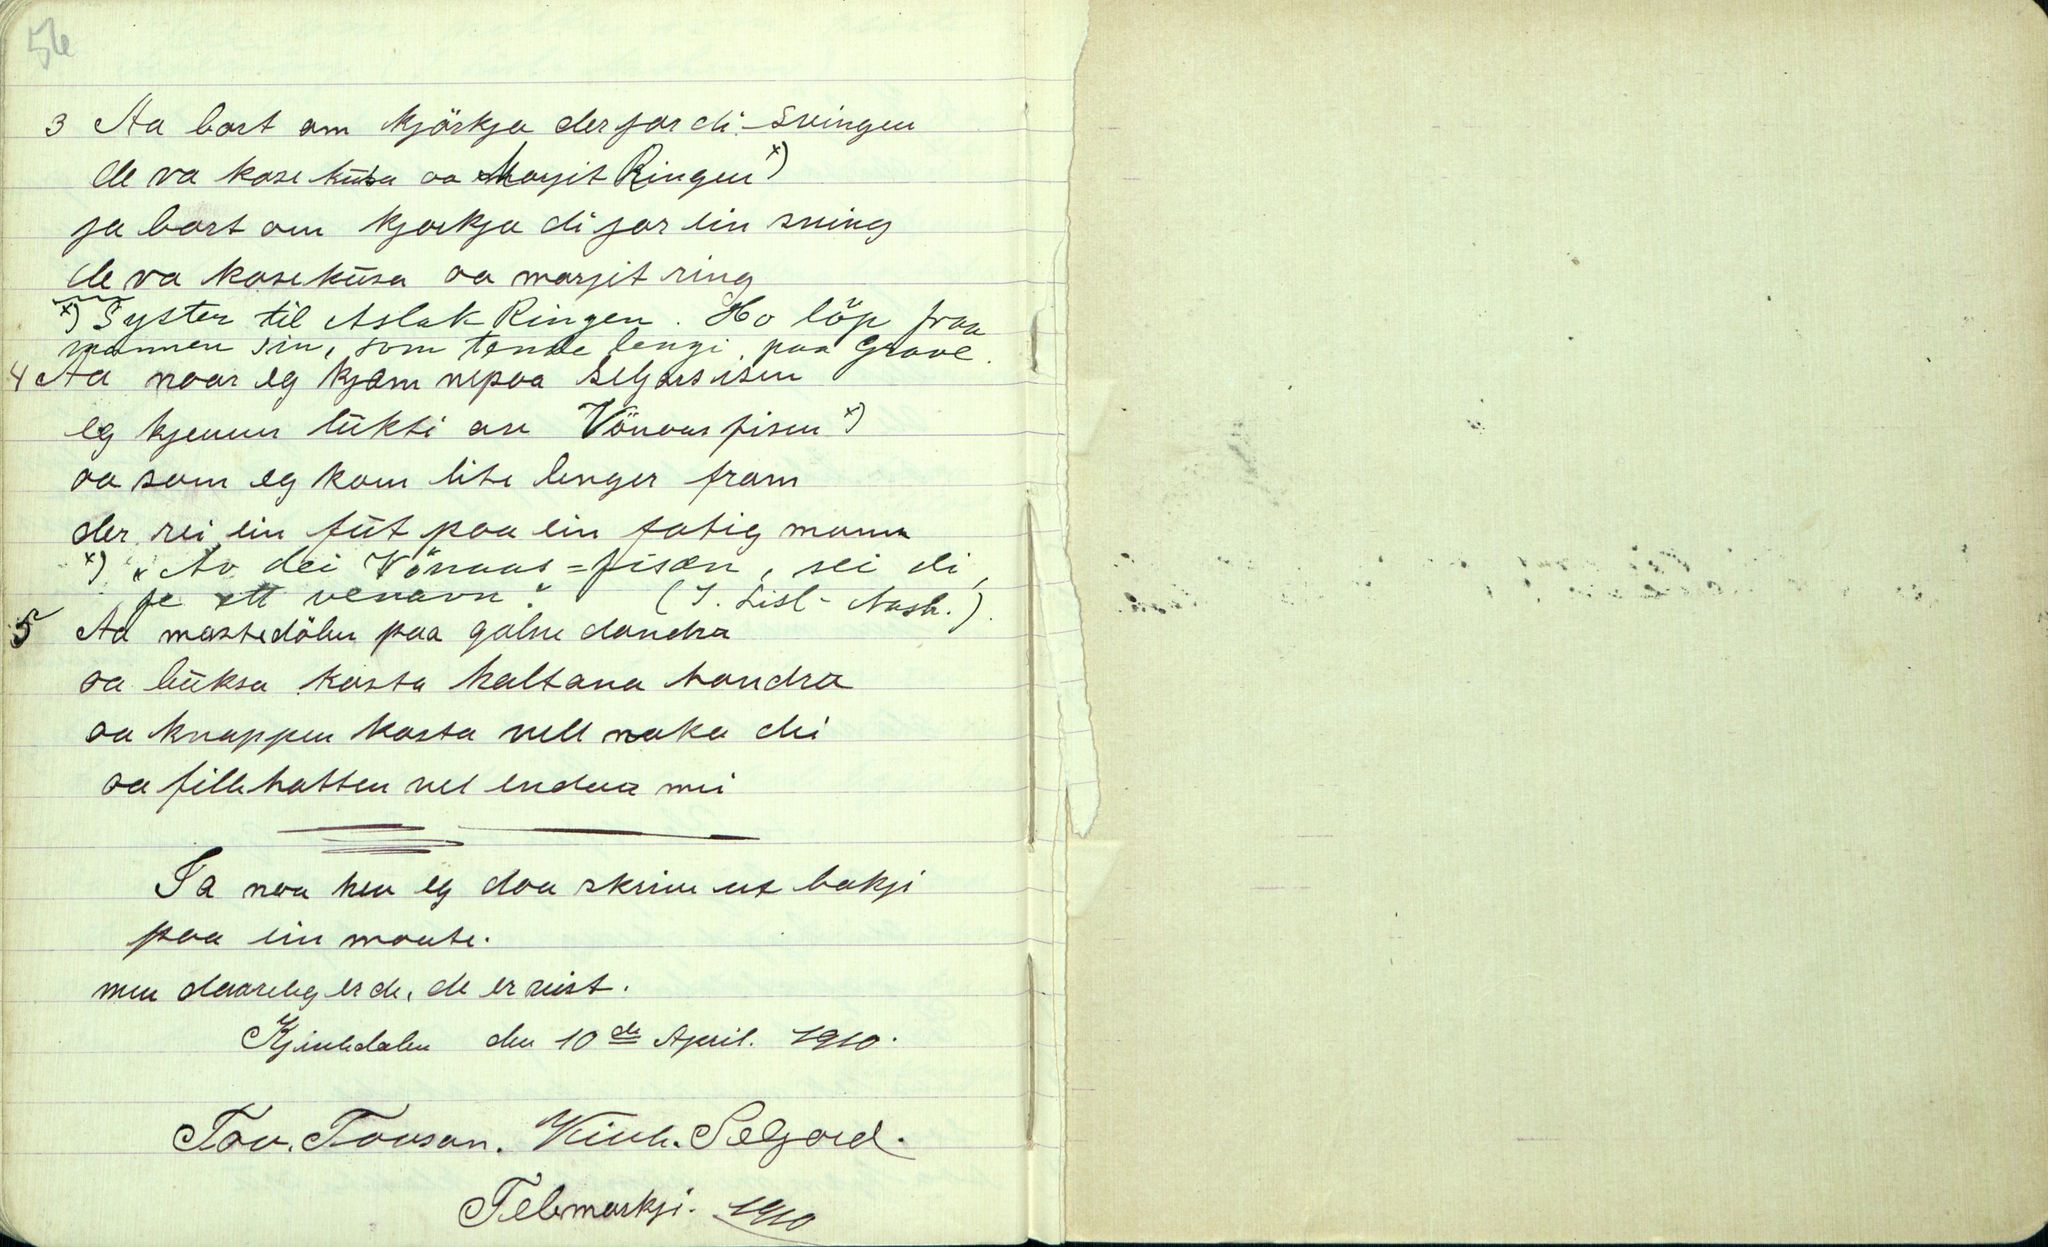 56
3 Aa bort om kjörkja der for di svingen
de va kose kusa oa Marjit Ringen x)
ja bort om kjorkja di for ein sving
de va kosekusa oa marjit ring
x) Syster til Aslak Ringen. Ho löp fraa
mannen sin, som tente lengi paa Grave.
4 Aa naar eg kjæm nepaa Seljorsisen
eg kjenner lukti av Vönaasfisen x)
oa som eg kom lite lenger fram
der rei ein fut paa ein fatig mann
x) "Av dei Vönaas=fisen, sei di,
fe ett venavn." (T. Lisl-Aash.).
5 Aa mastedölen paa galne dondra
oa buksa kosta haltana hondra
oa knappen kosta vell noko dei
oa fillehatten vel endaa mei
Ja naa hev eg daa skrive ut bokji
paa ein maate.
men daareleg er de, de er vist.
den 10de April. 1910.
Tov. Tovson. Seljord.
Telemarkji. 1910